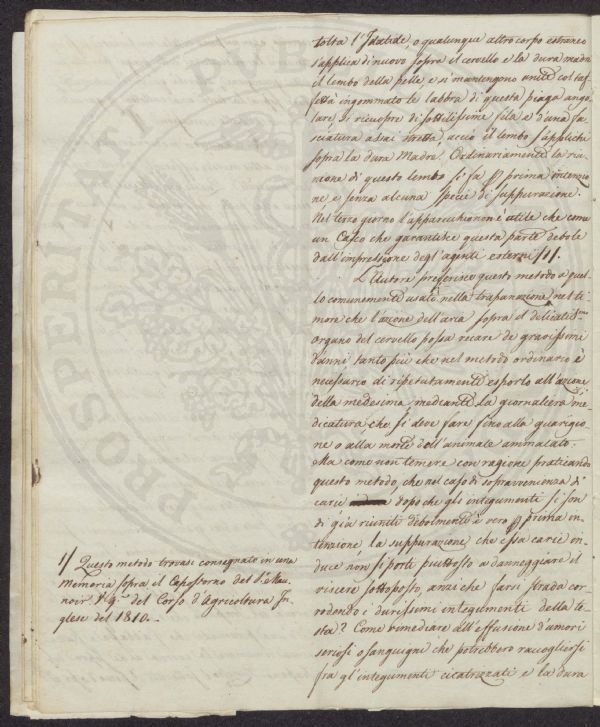 tolta l'Idatide, o qualunque altro corpo estraneo
s'applica di nuovo sopra il cervello e la dura madre
il lembo della pelle, e si mantengono unite col taf-
fetà ingommato le labbra di questa piaga ango-
lare, si ricuopre di sottilissime fila e d'una fa-
sciatura assai stretta, acciò il lembo s'applichi
sopra la dura Madre. Ordinariamente la riu-
nione di questo lembo si fa p prima intenzio-
ne, e senza alcuna specie di suppurazione.
Nel terzo giorno l'apparecchio non è utile che come
un Casco che garantisce questa parte debole
dall'impressione degl'agenti esterni /1/.
L'Autore preferisce questo metodo a quel-
lo comunemente usato nella trapanazione nel ti-
more che l'azione dell'aria sopra il delicatissmo
organo del cervello possa recare de gravissimi
danni tanto più che nel metodo ordinario è
necessario di ripetutamente esporlo all'azione
della medesima mediante la giornaliera me-
dicatura che si deve fare fino alla guarigio-
ne o alla morte dell'animale ammalato.
Ma come non temere con ragione praticando
questo metodo, che nel caso di sopravvenienza di
carie dopo che gli integumenti si son
di già riuniti debolmente è vero p prima in-
tenzione, la suppurazione che essa carie in-
duce non si porti piuttosto a danneggiare il
viscere sottoposto, anzi che farsi strada cor-
rodendo i durissimi integumenti della te-
sta? Come rimediare all'effusione d'umori
sierosi o sanguigni che potrebbero raccogliersi
fra gl'integumenti cicatrizzati e la dura
1/ Questo metodo trovasi consegnato in una
Memoria sopra il Capostorno del S. Mau-
noir del Corso d'Agricoltura In-
glese del 1810.
PROSPERITATI PVBLICAE